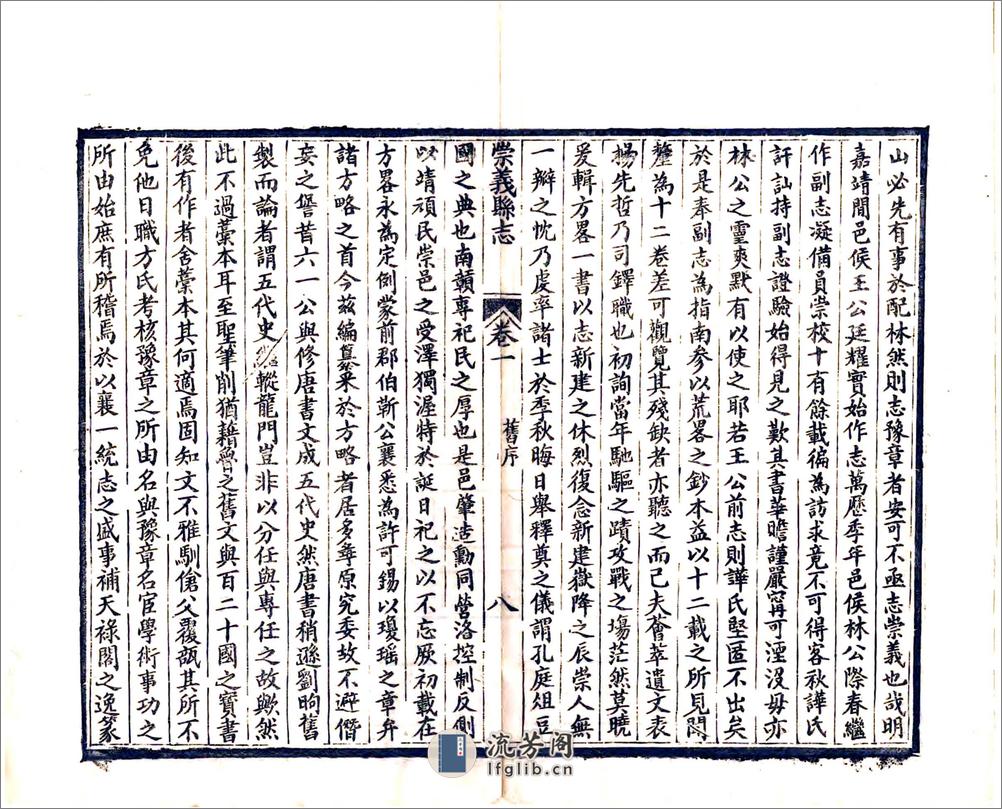 山必先有事於配林然則志豫章者安可不亟志崇義也哉明
嘉靖間邑侯王公廷耀實始作志萬歷季年邑侯林公際春繼
作副志凝備員崇校十有餘載徧為訪求竟不可得客秋譁氏
訐訕持副志證驗始得見之歎其書華瞻謹嚴寗可湮沒毋亦
林公之靈爽默有以使之耶若王公前志則譁氏堅匿不出矣
於是奉副志為指南參以荒畧之鈔本益以十二載之所見聞
釐為十二卷差可觀覽其殘缺者亦聽之而已夫薈萃遺文表
揚先哲乃司鐸職也初詢當年馳驅之蹟攻戰之塲茫然莫曉
爰輯方畧一書以志新建之休烈復念新建嶽降之辰崇人無
一瓣之忱乃虔率諸士於季秋晦日舉釋奠之儀謂孔庭俎豆
崇義縣志
卷一
舊序
八
國之典也南贛專祀民之厚也是邑肇造勳同營洛控制反側
以靖頑民崇邑之受澤獨渥特於誕日祀之以不忘厥初載在
方畧永為定例蒙前郡伯靳公襄悉為許可錫以瓊瑶之章弁
諸方略之首今茲編纂采於方略者居多尋原究委故不避僭
妄之訾昔六一公與修唐書文成五代史然唐書稍遜劉昫舊
製而論者謂五代史 轢龍門豈非以分任與專任之故歟然
此不過藁本耳至聖筆削猶藉魯之舊文與百二十國之寶書
後有作者舍藁本其何適焉固知文不雅馴傖父覆瓿其所不
免他日職方氏考核豫章之所由名與豫章名宦學術事功之
所由始庶有所稽焉於以襄一統志之盛事補天祿閣之逸篆
流芳阁
lfglib.cn